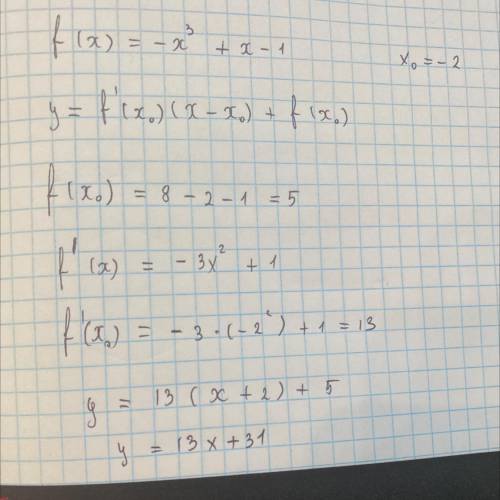 f(x) = -x³ + x - 1
x₀ = -2
y = f'(x₀)(x - x₀) + f(x₀)
f(x₀) = 8 - 2 - 1 = 5
f'(x) = -3x² + 1
f'(x₀) = -3·(-2²) + 1 = 13
y = 13(x + 2) + 5
y = 13x + 31